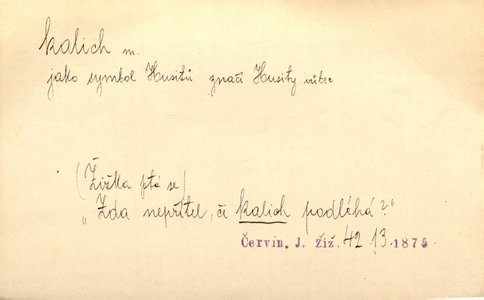 kalich m.
jako symbol Husitů značí Husity vůbec
(Žižka ptá se)
„Zda nepřítel, či kalich podléhá?"
Červín. J. Žiž. 42 13. 1875